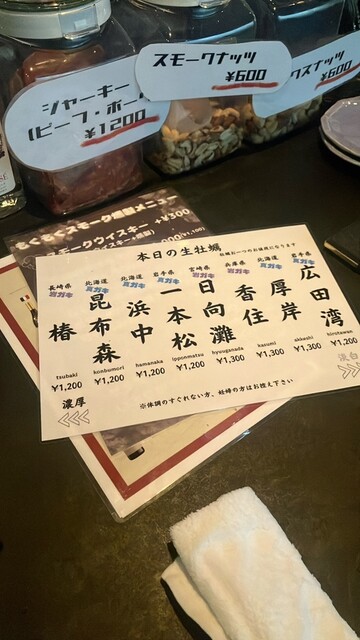 ジャーキー
(ビーフ・ポー
¥1200
スモークナッツ
¥600
クスナッツ
¥600
もくもくスモーク燻製メニュー
スモークウイスキー
+¥300
本日の生牡蠣
牡蠣お一つのお値段になります
長崎県 岩ガキ 椿 tsubaki ¥1,200
北海道 真ガキ 昆布森 konbumori ¥1,200
北海道 真ガキ 浜中 hamanaka ¥1,200
岩手県 真ガキ 一本松 ipponmatsu ¥1,200
宮崎県 岩ガキ 日向灘 hyuuganada ¥1,300
兵庫県 岩ガキ 香住 kasumi ¥1,300
北海道 真ガキ 厚岸 akkeshi ¥1,300
岩手県 真ガキ 広田湾 hirotawan ¥1,200
濃厚
淡白
※体調のすぐれない方、妊婦の方はお控え下さい